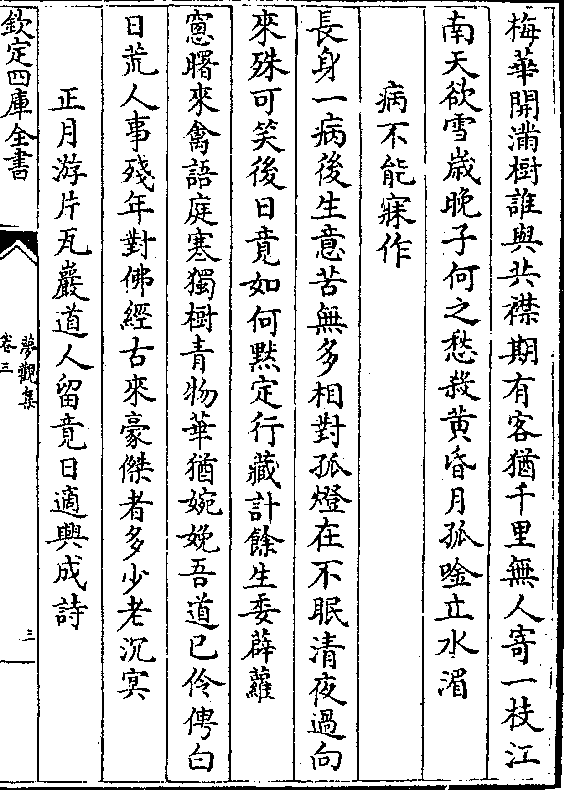 梅華開滿樹誰與共襟期有客猶千里無人寄一枝江
南天欲雪歲晚子何之愁殺黄昏月孤唫立水湄
病不能寐作
長身一病後生意苦無多相對孤燈在不眠清夜過向
來殊可笑後日竟如何黙定行藏計餘生委薜蘿
窻曙來禽語庭寒獨樹青物華猶婉娩吾道已伶俜白
日荒人事殘年對佛經古來豪傑者多少老沉冥
正月游片瓦巖道人留竟日適興成詩
欽定四庫全書
夢觀集
卷三
三